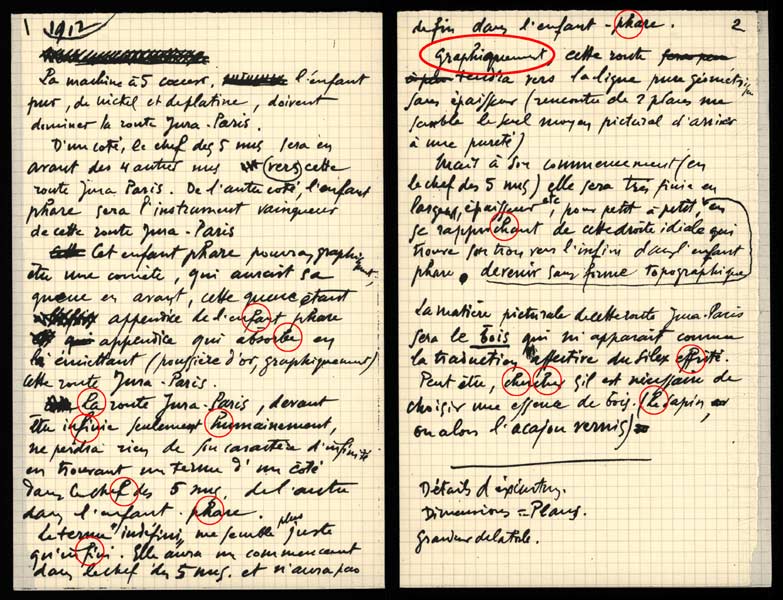 1 1912
La machine à 5 coeurs, l'enfant
pur, de nickel et de platine, doivent
dominer la route Jura-Paris.
D'un coté, le chef des 5 nus sera en
avant des 4 autres nus vers cette
route Jura Paris. De l'autre coté, l'enfant
phare sera l'instrument vainqueur
de cette route Jura-Paris
Cet enfant phare pourra, graphiquement,
être une comète, qui aurait sa
queue en avant, cette queue étant
appendice de l'enfant phare
appendice qui absorbe en
émiettant (poussière d'or, graphiquement)
cette route Jura-Paris.
La route Jura-Paris, devant
être infinie seulement humainement,
ne perdra rien de son caractère d'infinité
en trouvant un terme d'un côté
dans le chef des 5 nus, de l'autre
dans l'enfant-phare.
Le terme "indéfini" me semble plus juste
qu'infini. Elle aura un commencement
dans le chef des 5 nus. et n'aura pas
2
de fin dans l'enfant-phare.
Graphiquement cette route
tendra vers la ligne pure géométrique
sans épaisseur (rencontre de 2 plans me
semble le seul moyen pictural d'arriver
à une pureté)
Mais à son commencement (en
le chef des 5 nus) elle sera très finie en
largeur, épaisseur etc, pour petit à petit, en
se rapprochant de cette droite idéale qui
trouve son trou vers l'infini dans l'enfant
phare. devenir sans forme topographique
La matière picturale de cette route Jura-Paris
sera le bois qui m'apparait comme
la traduction affective du silex effrité.
Peut être, chercher s'il est nécessaire de
choisir une essence de bois. (Le sapin,
ou alors l'acajou vernis)
Détails d'éxécution.
Dimensions = Plans.
Grandeur de la toile.